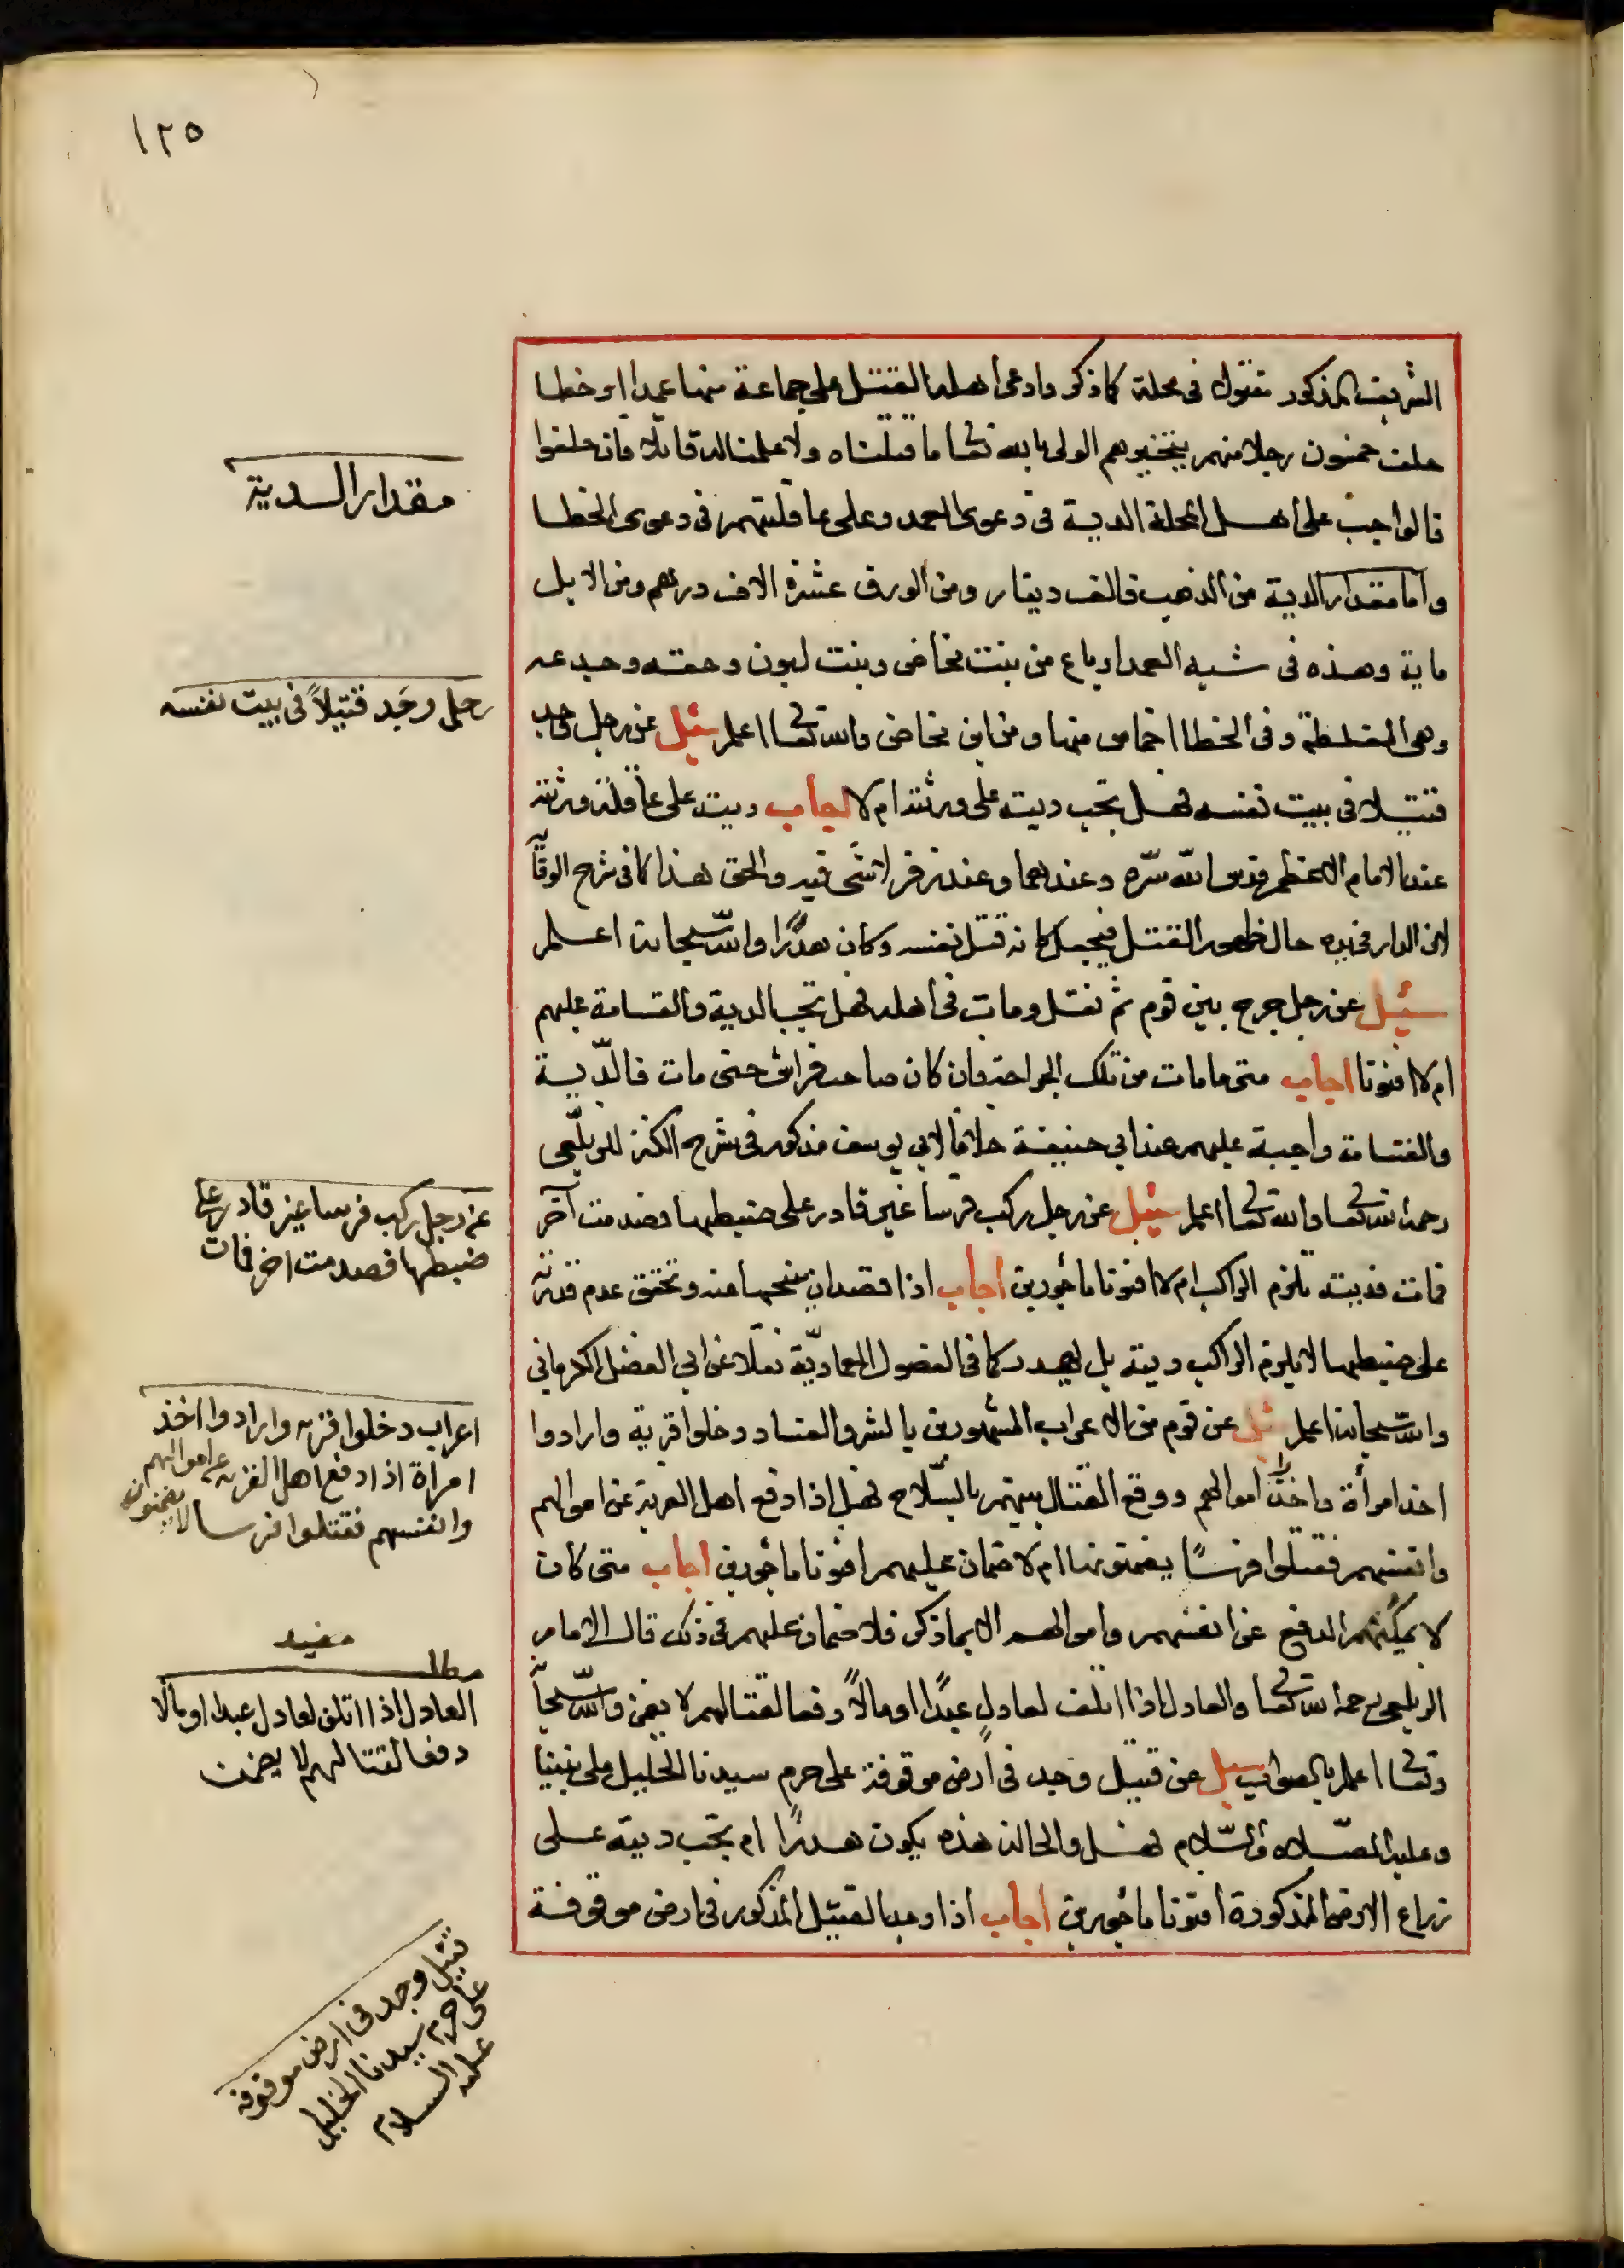 ١٢٥
الشريف المذكور مقتول فى محلة كما ذكر وادعى اهله القتل على جماعة منها عمدا او خطا
حلف خمسون رجلا منهم يتخيرهم الولى بالله تعا ما قتلناه ولا علمنا له قاتلا فان حلفوا
فالواجب على اهل المحلة الدية فى دعوى العمد وعلى عاقلتهم فى دعوى الخطا
واما مقدار الدية من الذهب فالف دينار ومن الورق عشرة الاف درهم ومن الابل
ماية وهذه فى شبه العمد ارباع من بنت مخاض وبنت لبون وحقه وجدعه
وهى المغلظة وفى الخطا اخماس منها ومن ابن مخاض والله تعا اعلم سئل عن رجل وجد
قتيلا فى بيت نفسه فهل تجب ديته على ورثته ام لا اجاب ديته على عاقلة ورثته
عند الامام الاعظم قدس الله سره وعندهما وعند زفر لا شى فيه والحق هذا كما فى شرح الوقاية
لان الدار فى يده حال ظهور القتل فيجعل كانه قتل نفسه وكان هدرا والله سبحانه اعلم
سئيل عن رجل جرح بين قوم ثم نقل ومات فى اهله فهل تجب الدية والقسامة عليهم
ام لا افتونا اجاب متى ما مات من تلك الجراحة فان كان صاحب فراش حتى مات فالدية
والقسامة واجبة عليهم عند ابي حنيفة خلافا لابي يوسف مذكور فى شرح الكنز للزيلعى
رحمه الله تعا والله تعا اعلم سئيل عن رجل ركب فرسا غير قادر على ضبطها فصدمت آخر
فمات فديته تلزم الراكب ام لا افتونا مأجورين اجاب اذا قصد ان ينحها منه وتحقق عدم قدرته
على ضبطها لا يلزم الراكب ديته بل يهدر كما فى الفصول العمادية نقلا عن ابي الفضل الكرماني
والله سبحانه اعلم سئل عن قوم من الاعراب المشهورين بالشر والفساد دخلوا قرية وارادوا
اخذ امرأة واخذ اموالهم ووقع القتال بينهم بالسلاح فهل اذا دفع اهل القرية عن اموالهم
وانفسهم فقتلوا فرسا يضمنونها ام لا ضمان عليهم افتونا مأجورين اجاب متى كان
لا يمكنهم الدفع عن انفسهم واموالهم الا بما ذكر فلا ضمان عليهم فى ذلك قال الامام
الزيلعى رحمه الله تعا والعادل اذا اتلف لعادل عبدا او مالا دفعا لقتالهم لا يضمن والله سبحانه
وتعا اعلم بالصواب سيل عن قتيل وجد فى ارض موقوفة على حرم سيدنا الخليل على نبينا
وعليه الصلاة والسلام فهل والحالة هذه يكون هدرا ام تجب ديته على
زراع الارض المذكورة افتونا مأجورين اجاب اذا وجد القتيل المذكور فى ارض موقوفة
مقدار الدية
رجل وجد قتيلاً فى بيت نفسه
عن رجل ركب فرسا غير قادر على
ضبطها فصدمت اخر فمات
اعراب دخلوا قريه وارادوا اخذ
امراة اذا دفع اهل القريه عن اموالهم
وانفسهم فقتلوا فرسا لا يضمنون
مفيد
مطلب
العادل اذا اتلف لعادل عبدا او مالا
دفعا لقتالهم لا يضمن
قتيل وجد فى ارض موقوفه
على حرم سيدنا الخليل
عليه السلام